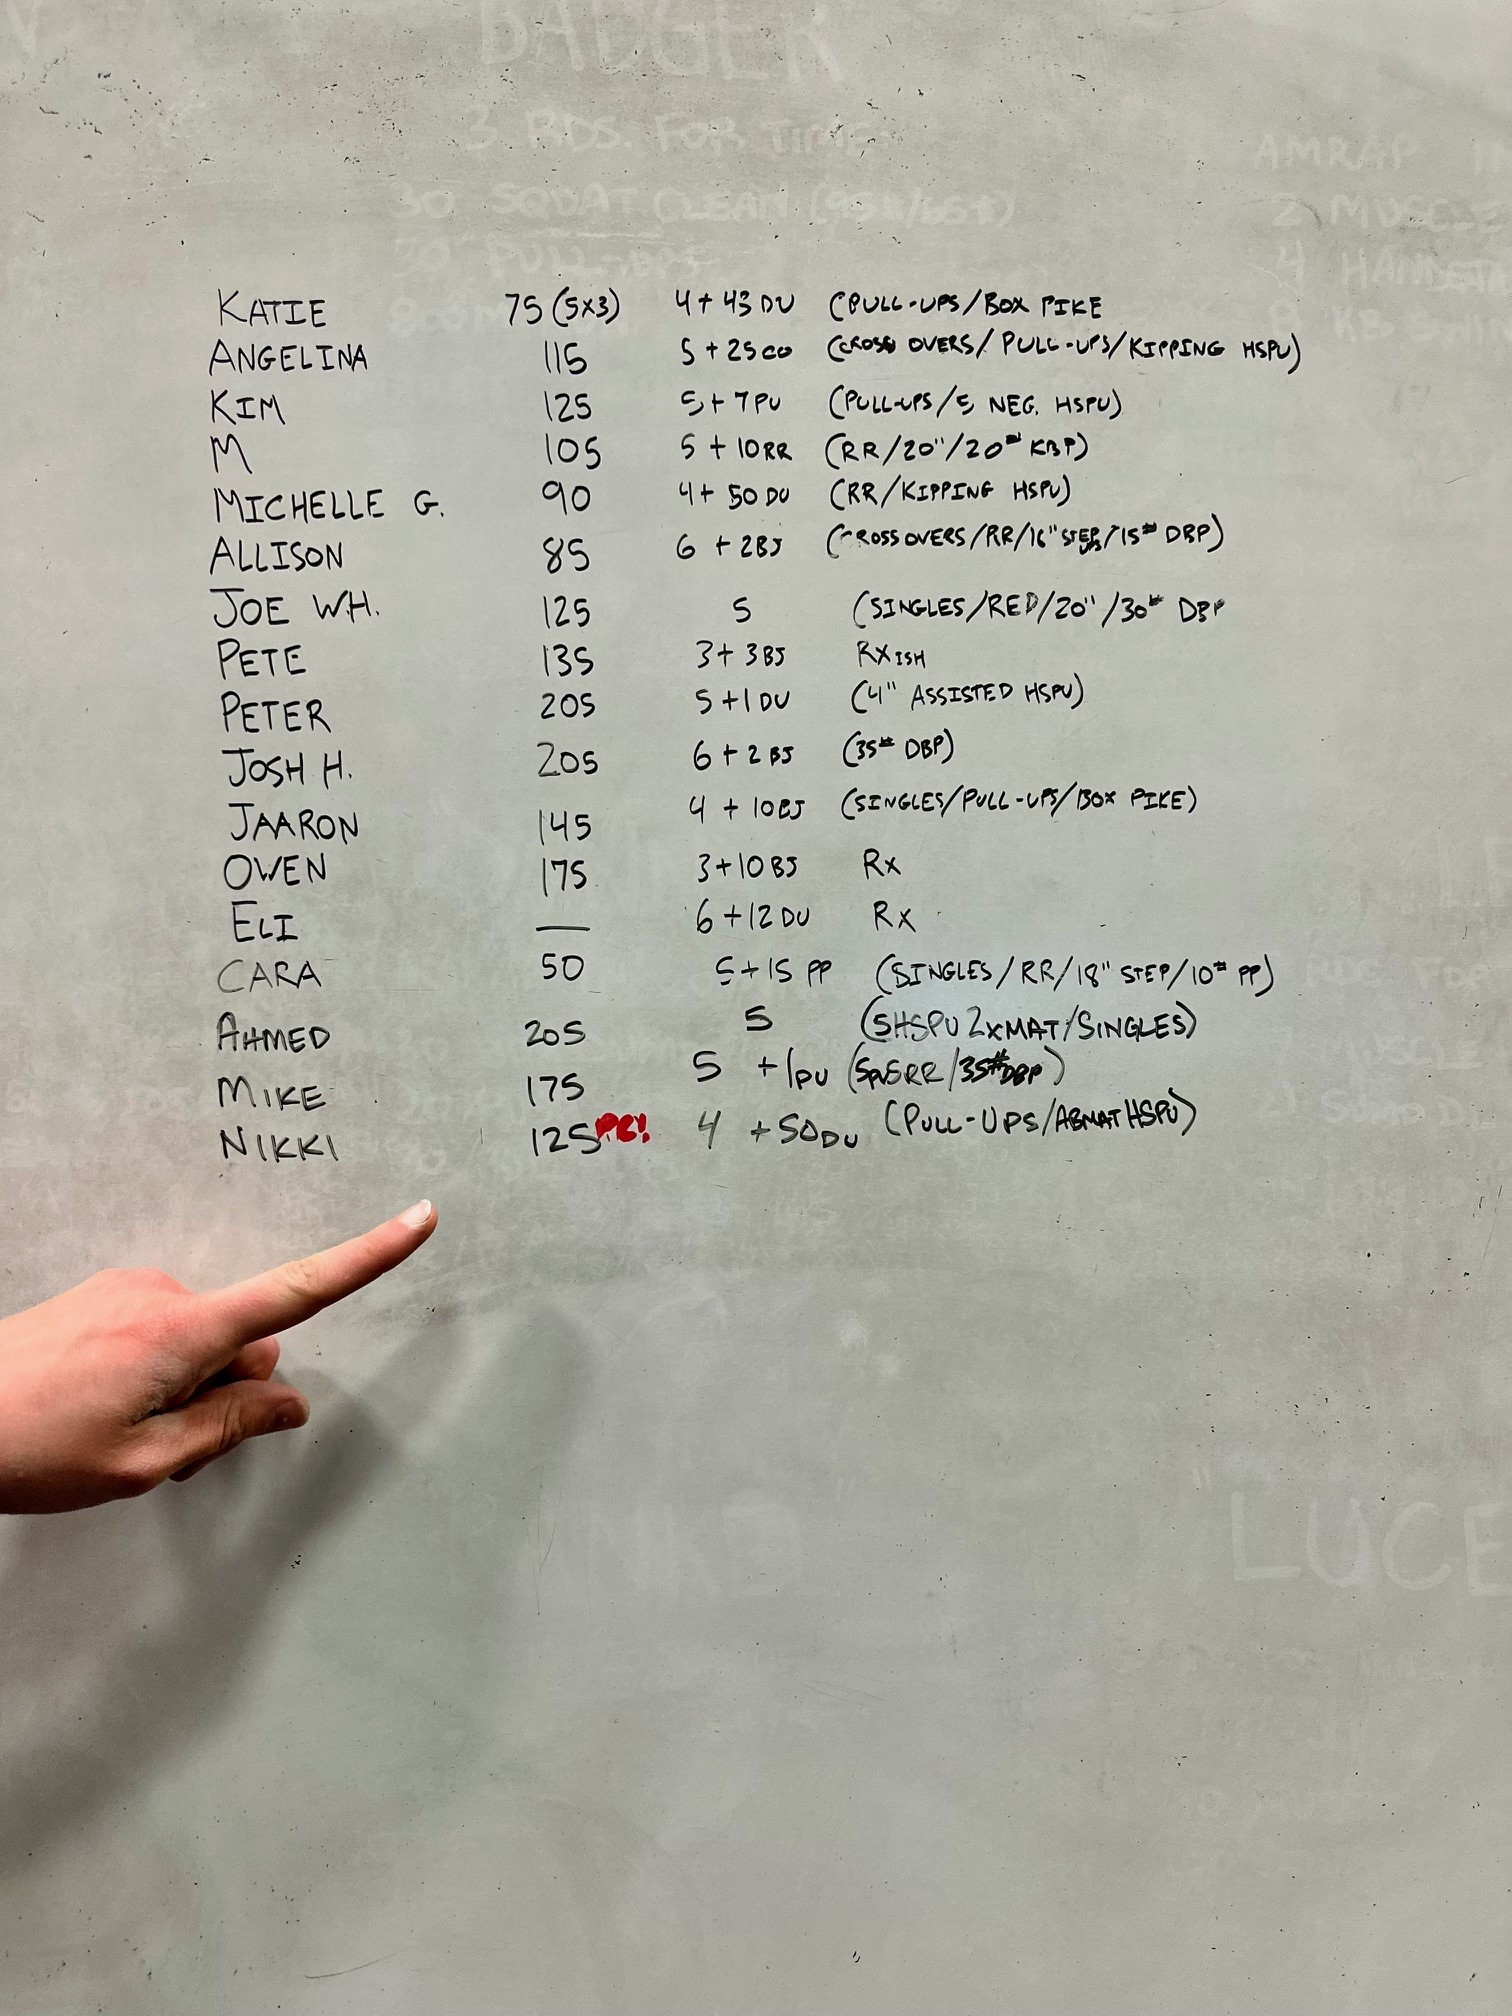 BADGER
3 RDS. FOR TIME
30 SQUAT CLEAN (95#/65#)
30 PULL-UPS
AMRAP IN
2 MUSCLE
4 HANDSTA
8 KB SWIN
KATIE 75 (5x3) 4 + 43 DU (PULL-UPS/BOX PIKE
ANGELINA 115 5 + 25 CO (CROSS OVERS/ PULL-UPS/KIPPING HSPU)
KIM 125 5 + 7 PU (PULL-UPS/5 NEG. HSPU)
M 105 5 + 10 RR (RR/20"/20# KBP)
MICHELLE G. 90 4 + 50 DU (RR/KIPPING HSPU)
ALLISON 85 6 + 2BJ (CROSS OVERS/RR/16" STEP UPS/15# DBP)
JOE W.H. 125 5 (SINGLES/RED/20"/30# DBP
PETE 135 3 + 3BJ RXISH
PETER 205 5 + 1 DU (4" ASSISTED HSPU)
JOSH H. 205 6 + 2 BJ (35# DBP)
JAARON 145 4 + 10BJ (SINGLES/PULL-UPS/BOX PIKE)
OWEN 175 3 + 10 BJ RX
ELI — 6 + 12 DU RX
CARA 50 5 + 15 PP (SINGLES/RR/18" STEP/10# PP)
AHMED 205 5 (5HSPU 2xMAT/SINGLES)
MIKE 175 5 + 1DU (5RR/35#DBP)
NIKKI 125 PR! 4 + 50DU (PULL-UPS/ABMAT HSPU)
"LUCE